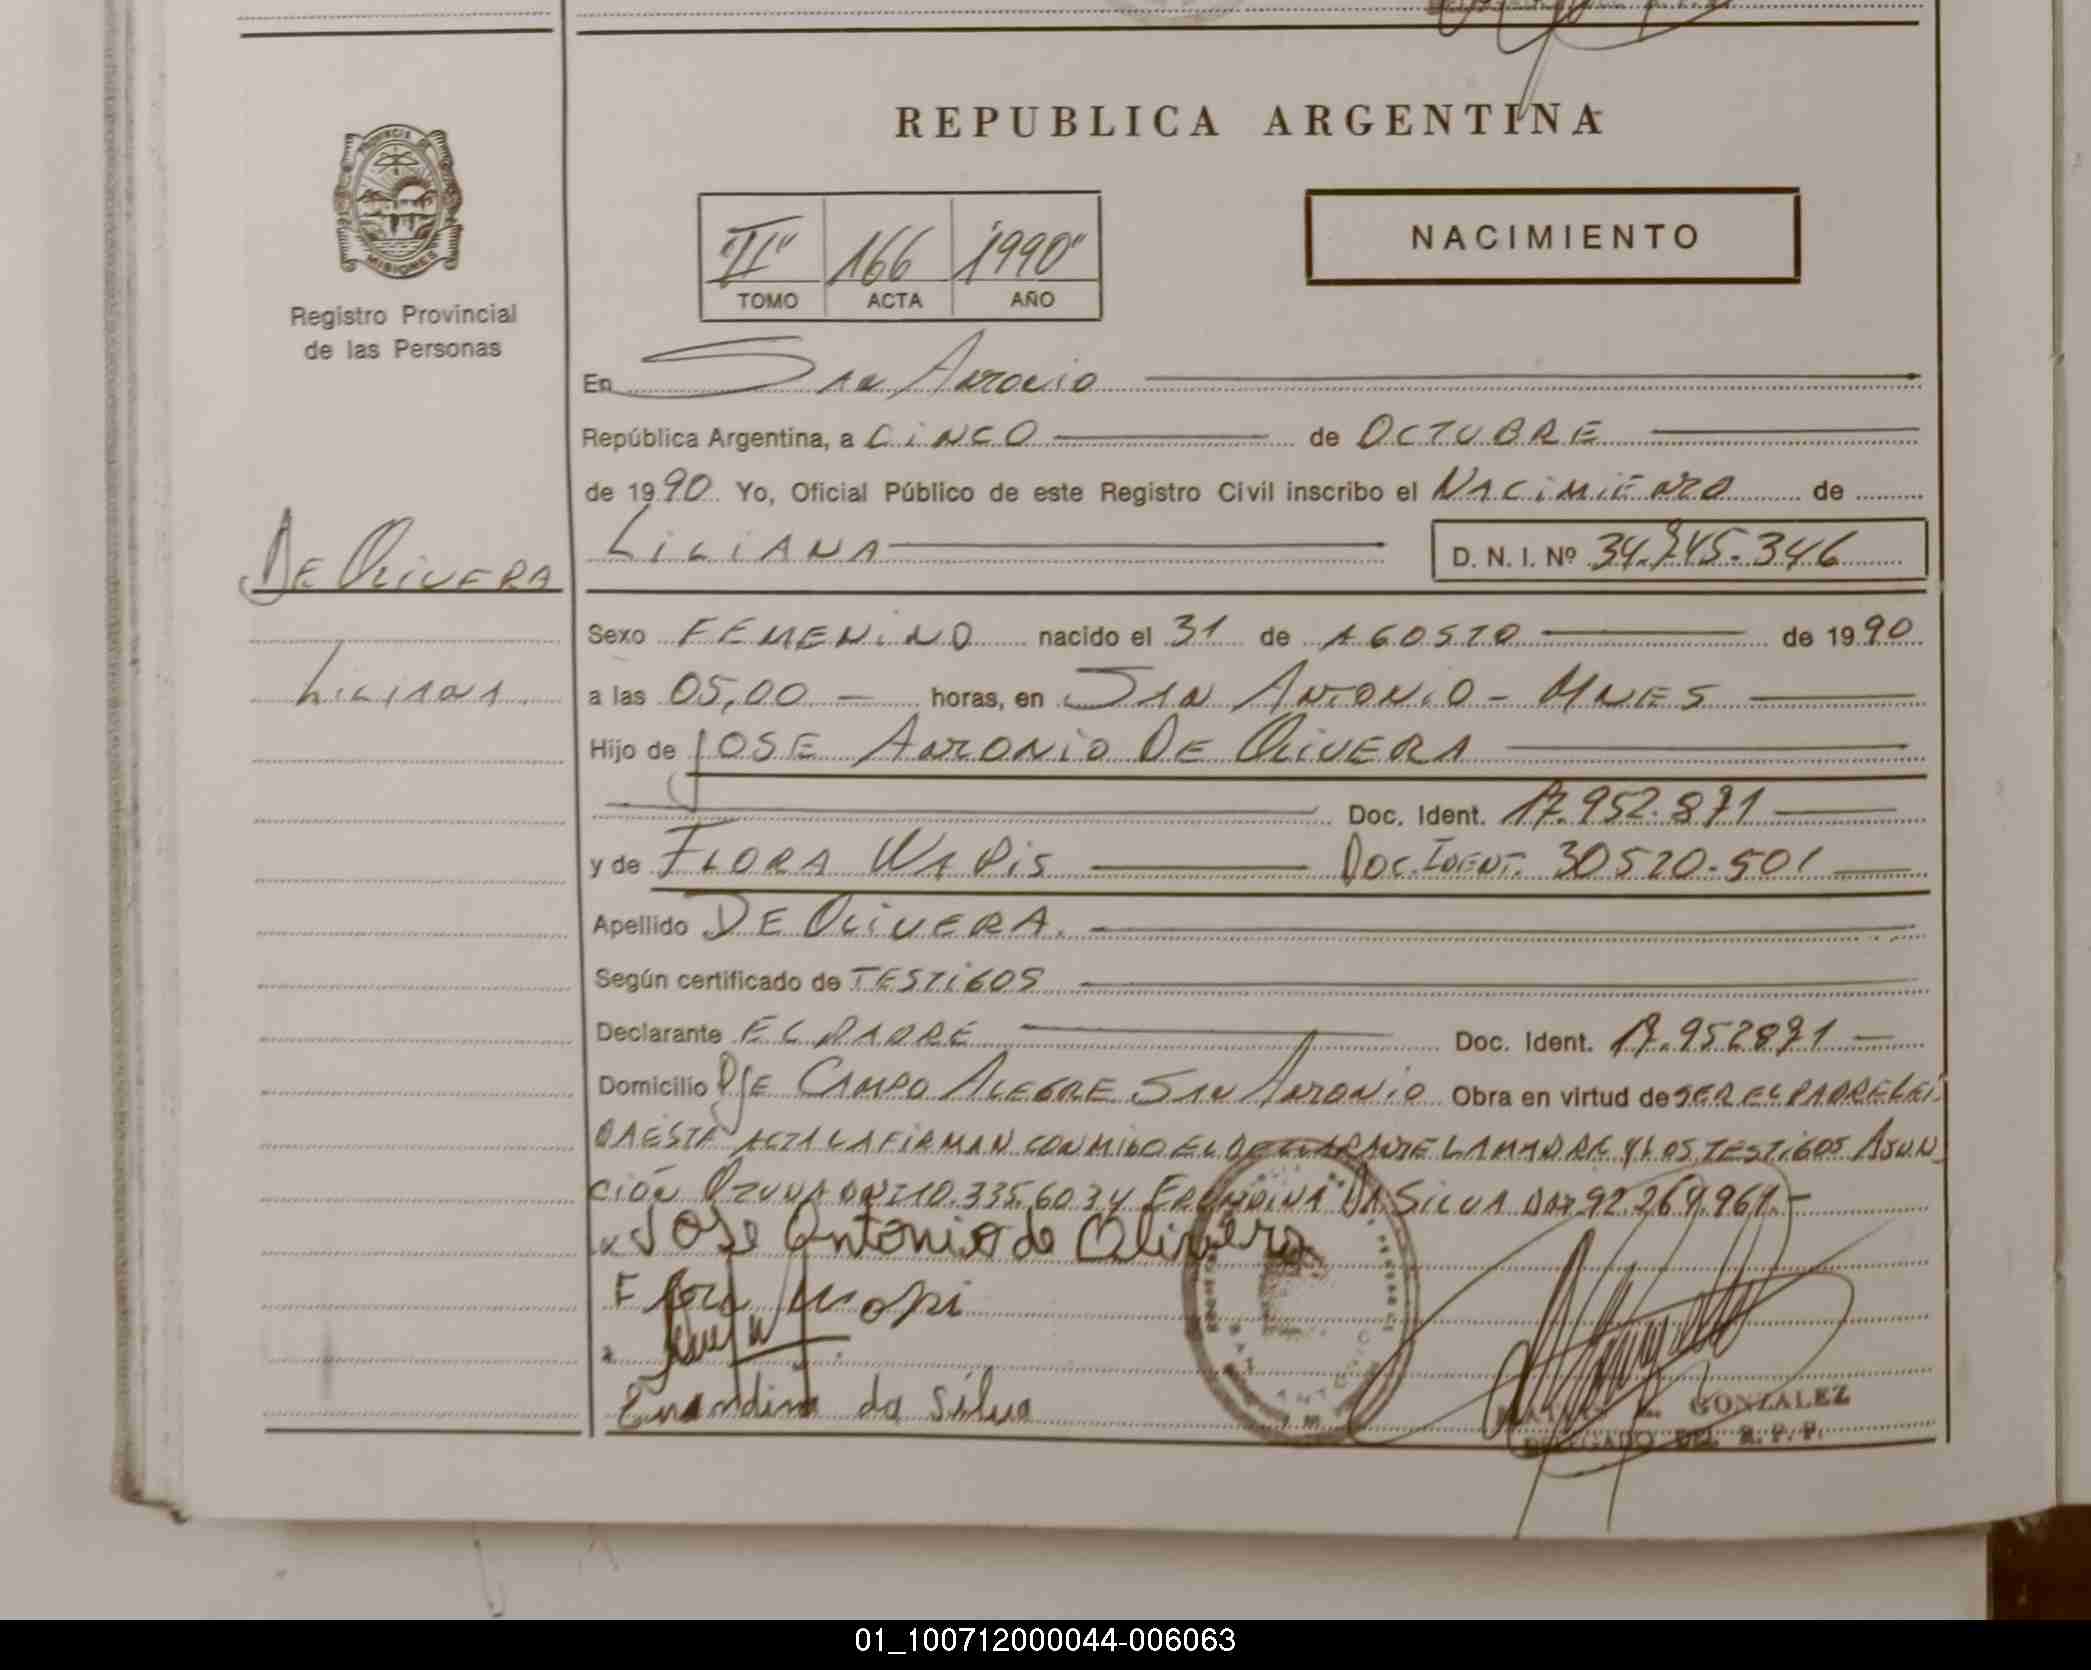 REPUBLICA ARGENTINA
PROVINCIA DE
MISIONES
Registro Provincial
de las Personas
NACIMIENTO
"II" 166 1990"
TOMO ACTA AÑO
En San Antonio
República Argentina, a CINCO de OCTUBRE
de 1990 Yo, Oficial Público de este Registro Civil inscribo el NACIMIENTO de
LILIANA D. N. I. Nº 34.945.346
DE OLIVERA
LILIANA
Sexo FEMENINO nacido el 31 de AGOSTO de 1990
a las 05,00 - horas, en SAN ANTONIO - MNES
Hijo de JOSE ANTONIO DE OLIVERA
Doc. Ident. 17.952.871
y de FLORA Doc. IDENT. 30520.501
Apellido DE OLIVERA.
Según certificado de TESTIGOS
Declarante EL PADRE Doc. Ident. 17.952871
Domicilio PJE CAMPO ALEGRE SAN ANTONIO Obra en virtud de SER EL PADRE LEI
DA ESTA ACTA LA FIRMAN CONMIGO EL DECLARANTE LA MADRE Y LOS TESTIGOS ASUN
CIÓN OZUNA DNI 10.335.603 Y DA SILVA DNI 92.269.961.-
Jose Antonio de Olivera
Flora
da Silva
GONZALEZ
DELEGADO DEL R.P.P.
01_100712000044-006063